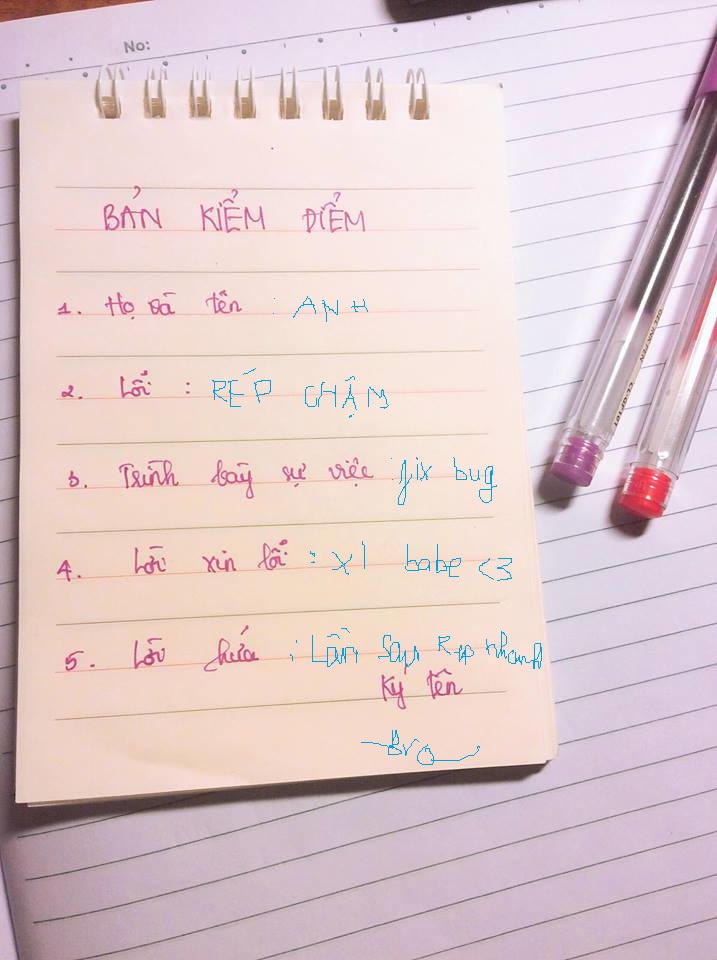 No:
BẢN KIỂM ĐIỂM
1. Họ và tên : ANH
2. Lỗi : RÉP CHẬM
3. Trình bày sự việc : fix bug
4. Lời xin lỗi : xl babe <3
5. Lời hứa : Lần Sau Rep nhanh
Ký tên
Bro